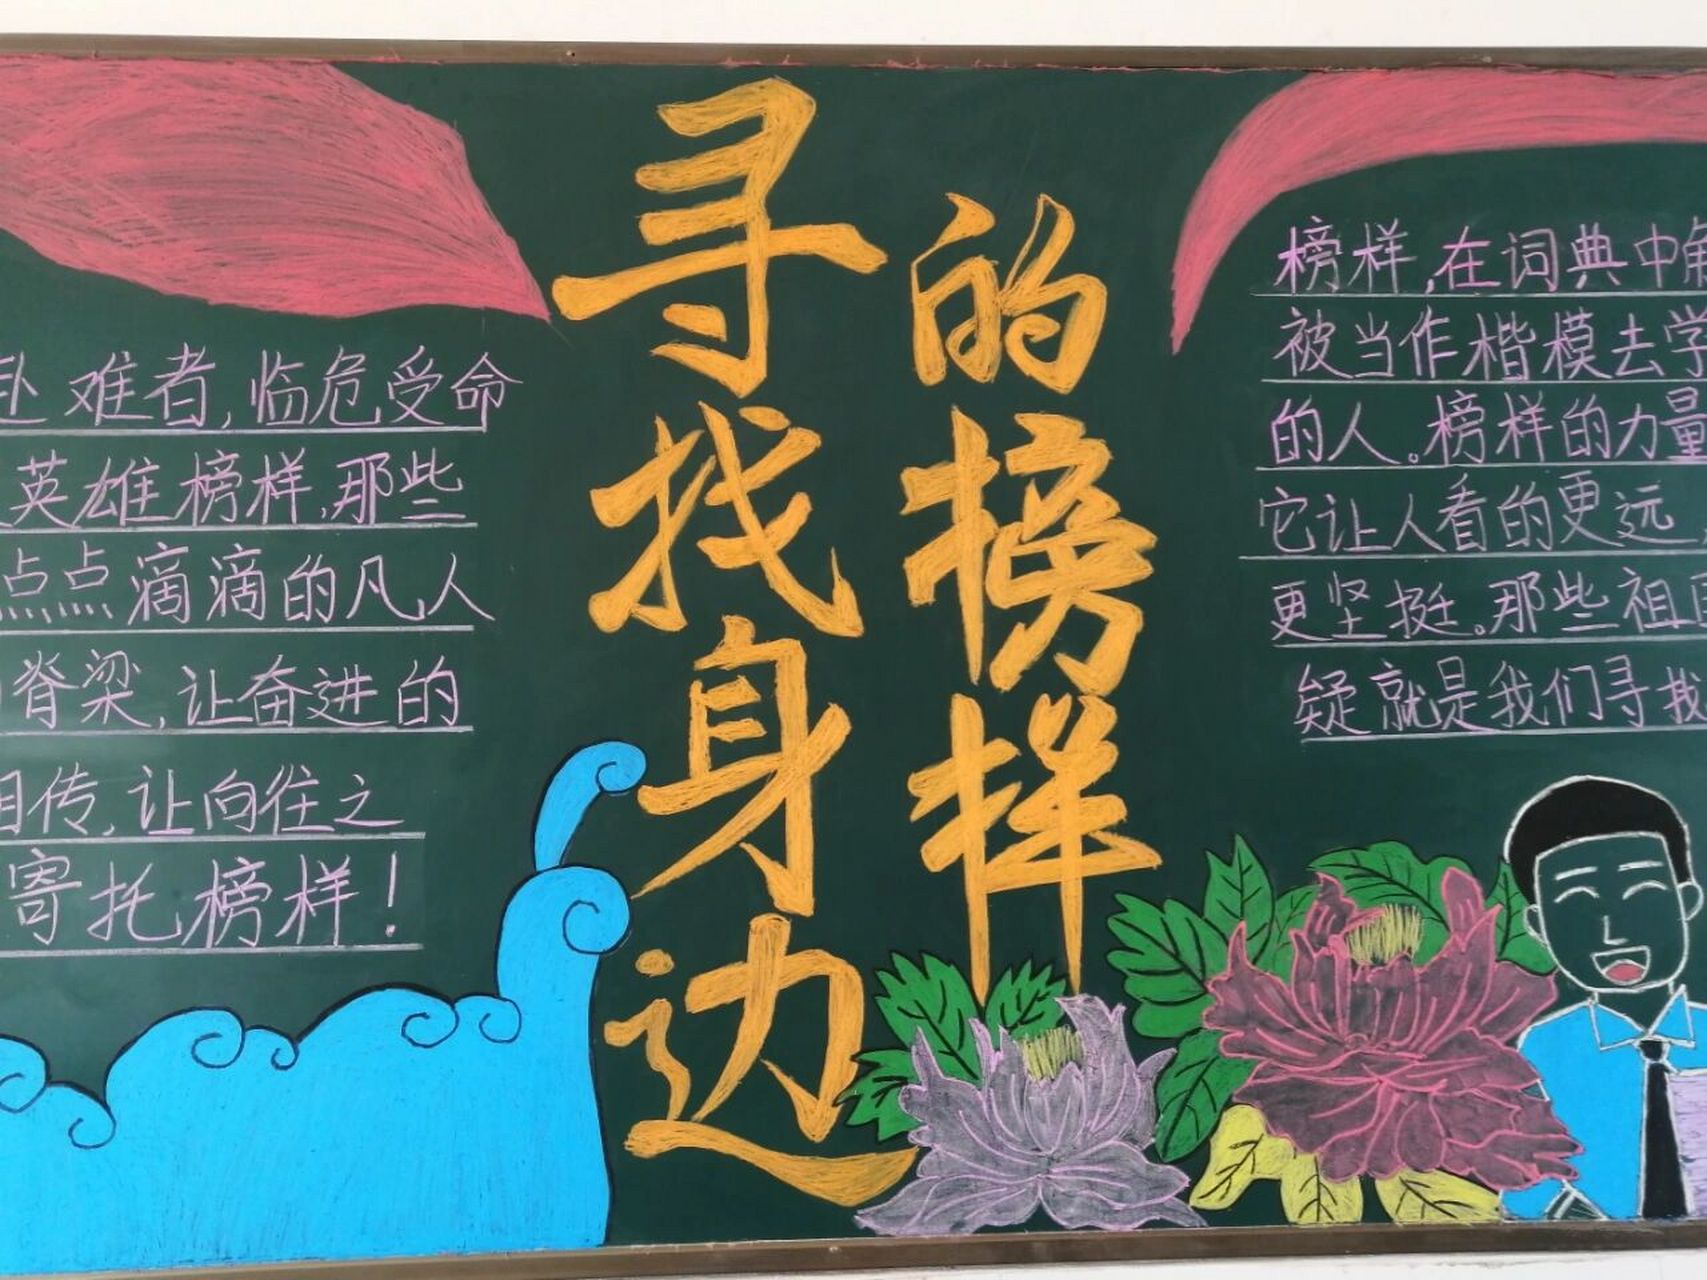 寻找身边
的榜样
赴难者,临危受命
英雄榜样,那些
点点滴滴的凡人
脊梁,让奋进的
相传,让向往之
寄托榜样!
榜样,在词典中解
被当作楷模去学
的人。榜样的力量
它让人看的更远
更坚挺。那些祖国
疑就是我们寻找